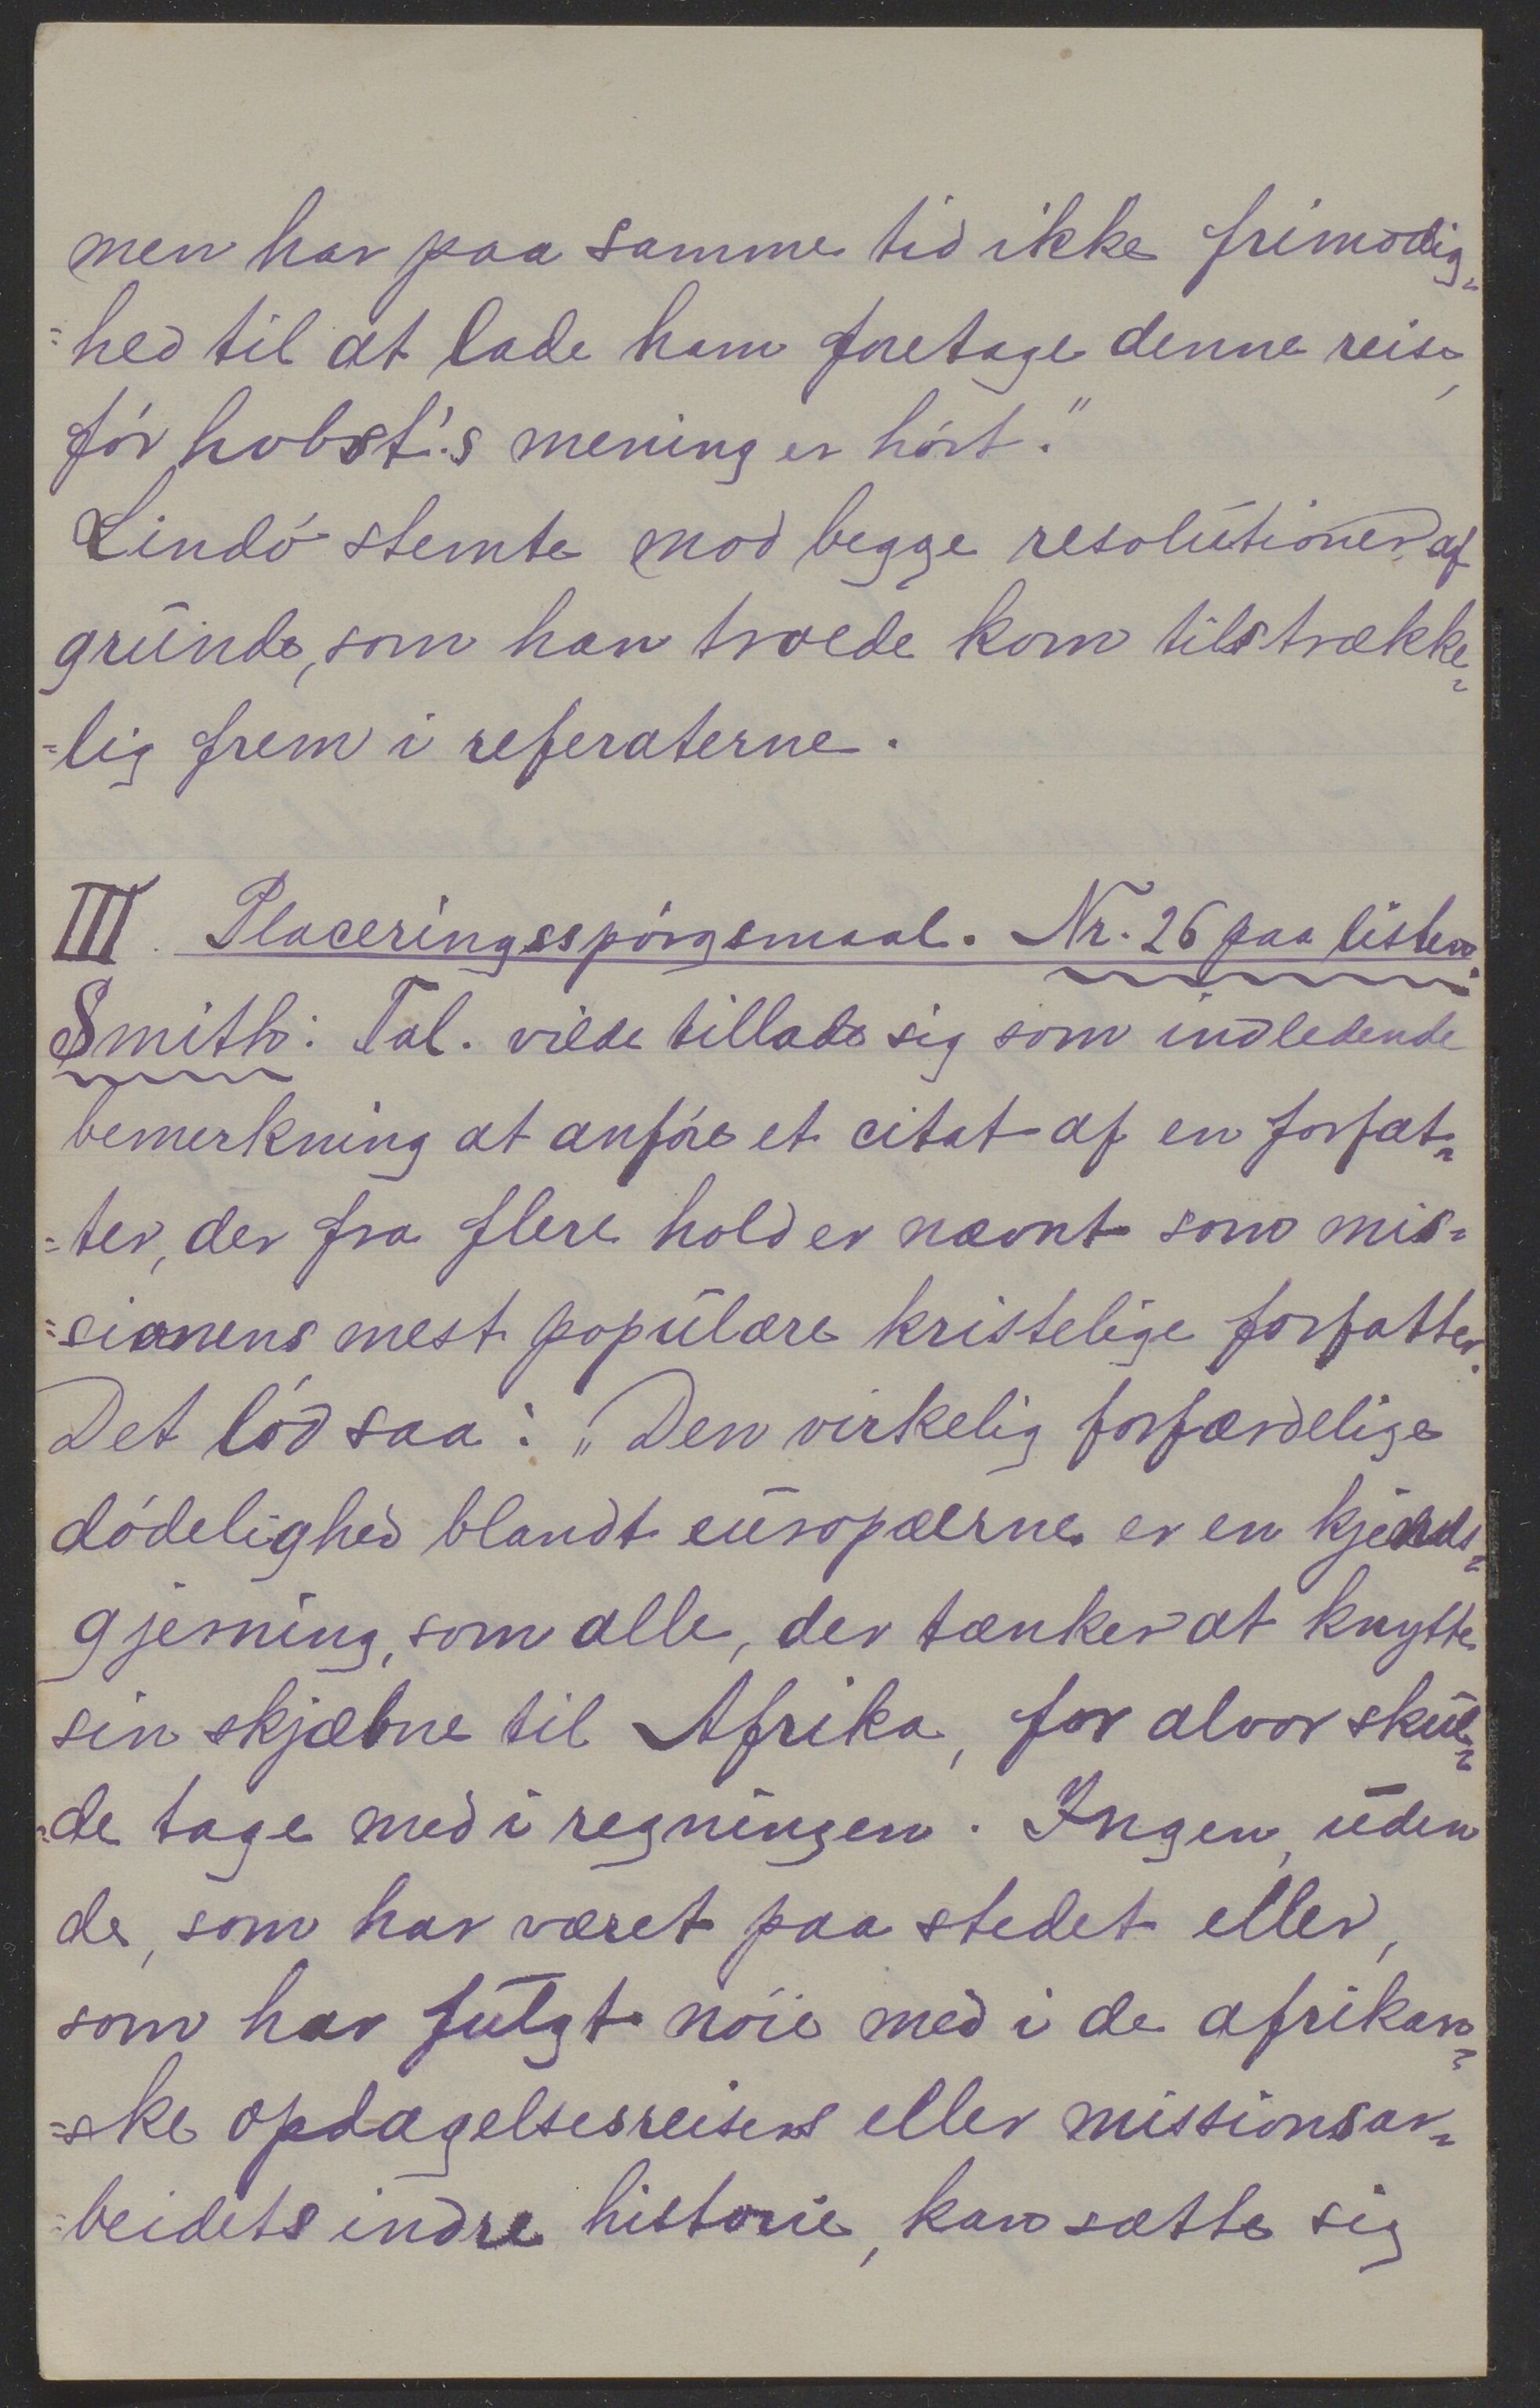 men har paa samme tid ikke frimodig-
=hed til at lade ham foretage denne reise,
før hvbst's mening er hørt."
Lindø stemte mod begge resolutioner af
grunde, som han troede kom tilstrække=
=lig frem i referaterne.
III. Placeringsspørgsmaal. Nr. 26 paa listen.
Smith: Tal. vilde tillade sig som indledende
bemerkning at anføre et citat af en forfat=
=ter, der fra flere hold er nævnt som mis=
=sionens mest populære kristelige forfatter.
Det lød saa: "Den virkelig forfærdelige
dødelighed blandt europæerne er en kjends=
gjerning, som alle, der tænker at knytte
sin skjæbne til Afrika, for alvor skul=
=de tage med i regningen. Ingen, uden
de, som har været paa stedet eller,
som har fulgt nøie med i de afrikan=
=ske opdagelsesreisers eller missionsar=
=beidets indre historie, kan sætte sig